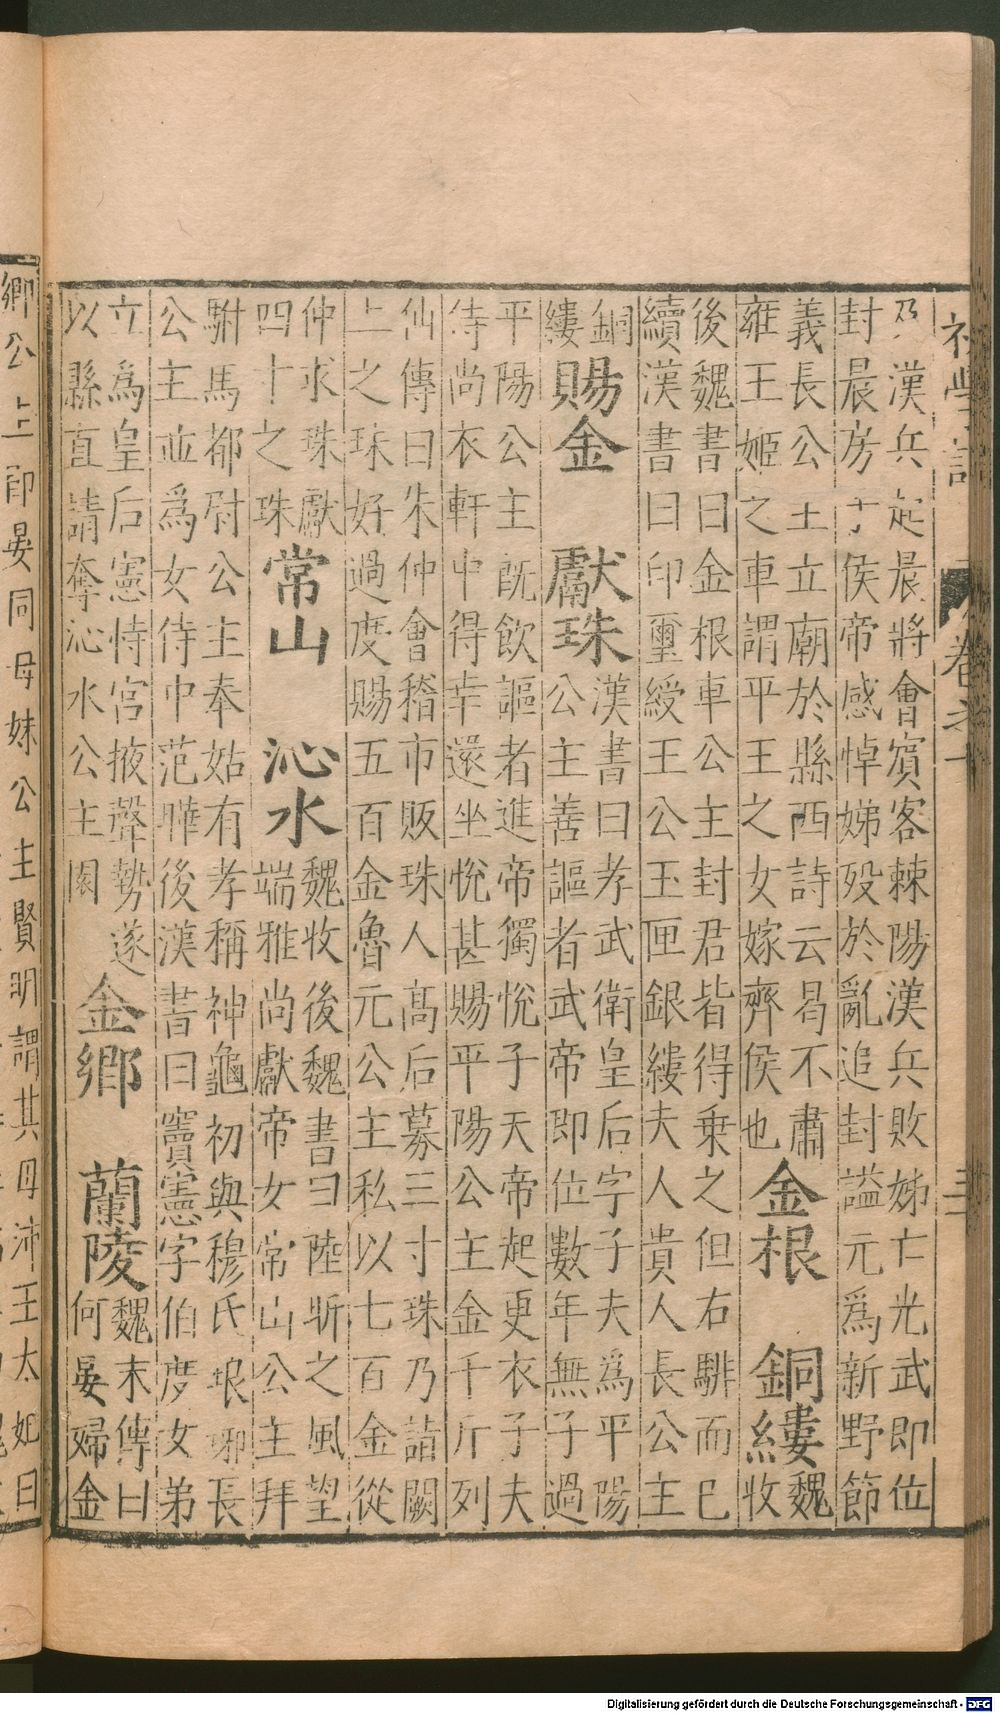 乃漢兵起晨將會賓客棘陽漢兵敗姊亡光武即位
封晨房子侯帝感悼娣歿於亂追封謚元爲新野節
義長公主立廟於縣西詩云曷不肅
雍王姬之車謂平王之女嫁齊侯也
金根 銅縷
魏
收
後魏書曰金根車公主封君皆得乗之但右騑而已
續漢書曰印璽綬王公玉匣銀縷夫人貴人長公主
銅
縷
賜金 獻珠
漢書曰孝武衛皇后字子夫爲平陽
公主善謳者武帝即位數年無子過
平陽公主既飲謳者進帝獨悅子夫帝起更衣子夫
侍尚衣軒中得幸還坐悅甚賜平陽公主金千斤列
仙傳曰朱仲會稽市販珠人高后募三寸珠乃詣闕
上之珠好過度賜五百金魯元公主私以七百金從
仲求珠獻
四寸之珠
常山 沁水
魏收後魏書曰陸昕之風望
端雅尚獻帝女常山公主拜
駙馬都尉公主奉姑有孝稱神龜初與穆氏琅邪長
公主並爲女侍中范曄後漢書曰竇憲字伯度女弟
立爲皇后憲恃宮掖聲勢遂
以縣直請奪沁水公主園
金鄉 蘭陵
魏末傳曰
何晏婦金
初學記 卷之十
鄉公主即晏同母妹公主賢明謂其母沛王太妃曰
Digitalisierung gefördert durch die Deutsche Forschungsgemeinschaft - DFG